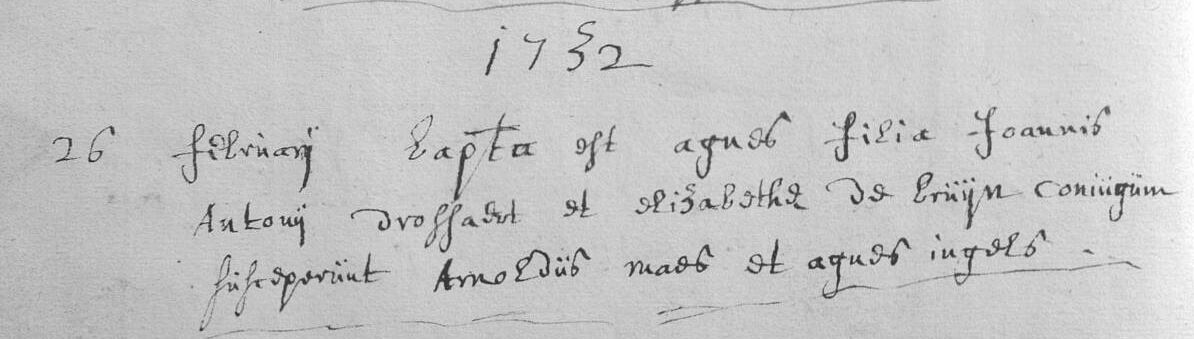 1732
26 februarij bapta est agnes filia Joannis
Antonij drossaert et elizabethe De bruijn coniugum
susceperunt Arnoldus maes et agnes ingels.